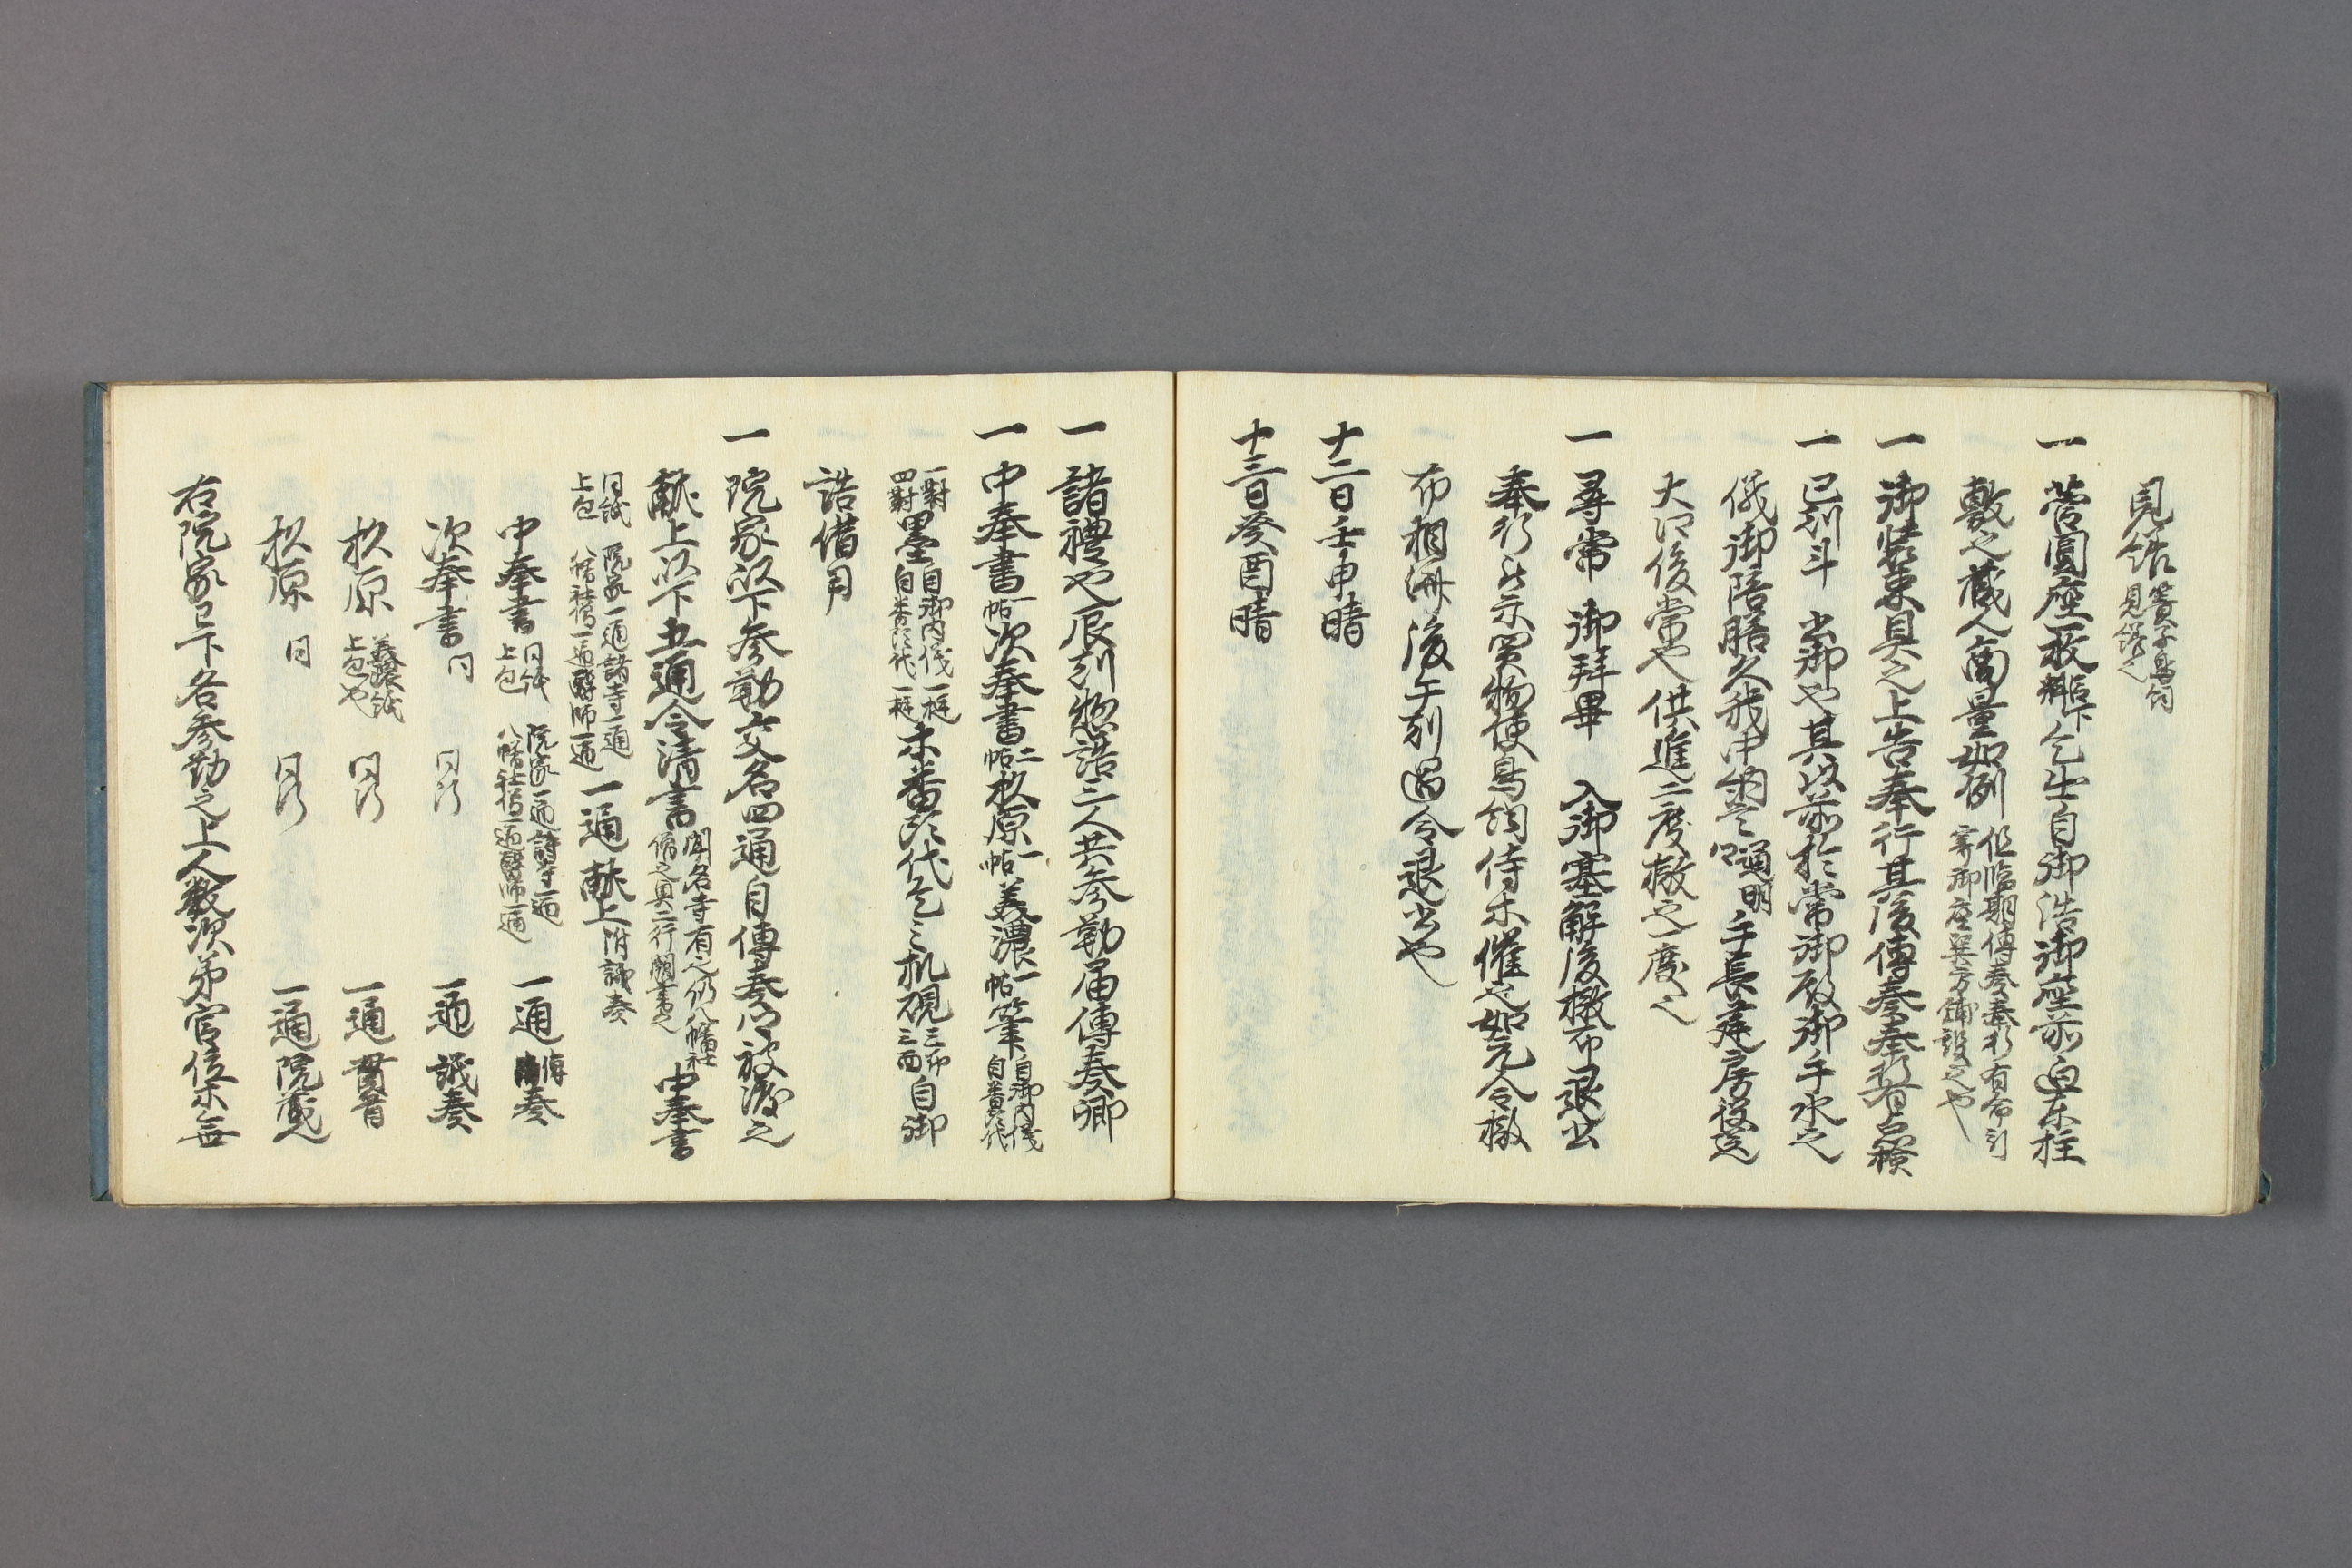 見繕 簀子鳥飼見繕之
一 菅圓座一枚 階下料 乞出自御浩御座前迫東柱
敷之蔵人商量如例 但臨期傳奏奉行有命引寄御座巽方鋪設之也
一 御装束具之上告奉行其後傳奏奉行有点検
一 巳刻斗 出御也其以前於常御殿御手水之
儀御陪膳久我中納言 通明 手長建房役送
大江俊常也供進二度撤之一度之
一 尋常 御拝畢 入御塞解後撤布退出
奉行示買物使鳥飼侍等催之如元令撤
布相済後午刻過令退出也
十二日壬申晴
十三日癸酉晴
一 諸禮也辰刻惣詰三人共参勤届傳奏卿
一 中奉書 一帖 次奉書 二帖 杦原 一帖 美濃 一帖 筆 自御内儀 一對 自番頭代 四對
墨 自御内儀 一挺 自番頭代 一挺 等番頭代乞之机硯 三脚 三面 自御
詰借用
一 院家以下参勤交名四通自傳奏卿被渡之
献上以下五通令清書 聞名寺有之仍八幡社 中奉書
同紙上包 院家一通諸寺一通 八幡社務一通醫師一通 一通 献上 附議奏
中奉書 同紙上包 院家一通諸寺一通 八幡社務一通醫師一通 一通 傳奏
次奉書 同 同断 一通 議奏
杦原 美濃紙上包也 同断 一通 貫首
杦原 同 同断 一通 院蔵人
右院家已下各参勤之上人数次第官位等無